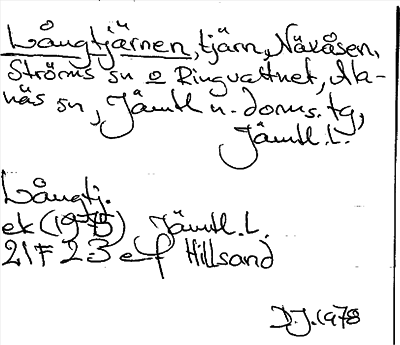 Långtjärnen, tjärn, Näxåsen,
Ströms sn o Ringvattnet, Ala-
näs sn, Jämtl n. doms. tg,
Jämtl. L.
Långtj.
ek (1975) Jämtl. L.
21F 23 ef Hillsand
D.J. 1978